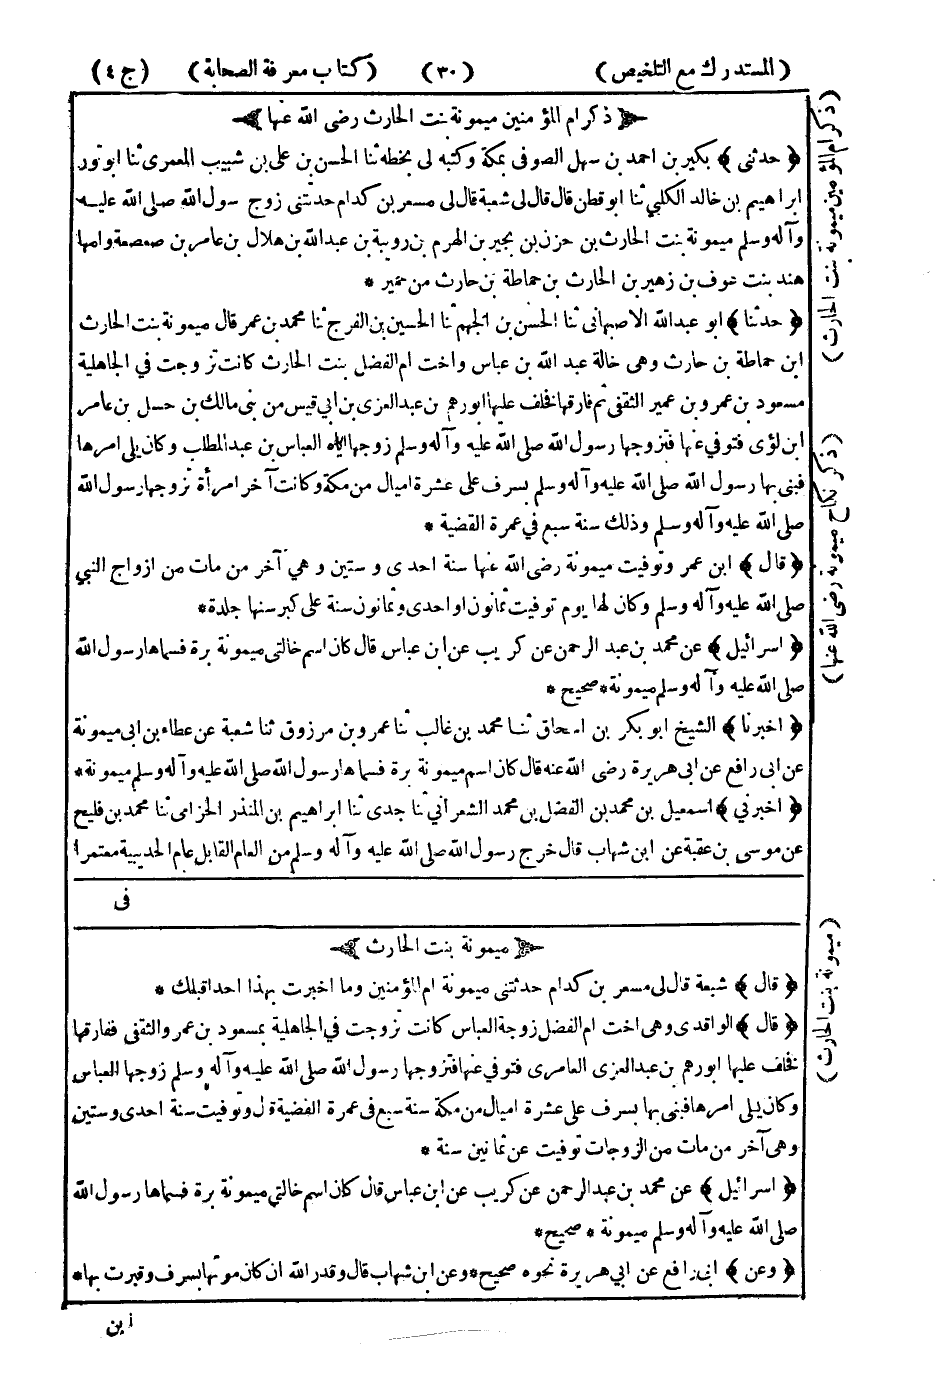 (المستدرك مع التلخيص) (٣٠) (كتاب معرفة الصحابة) (ج ٤)
ذكر ام المؤمنين ميمونة بنت الحارث رضى الله عنها
﴿ حدثنى ﴾ بكير بن احمد بن سهل الصوفى بمكة وكتبه لى بخطه ثنا الحسن بن على بن شبيب المعمرى ثنا ابو ثور
ابراهيم بن خالد الكلبي ثنا ابو قطن قال قال لى شعبة قال لى مسعر بن كدام حدثتنى زوج رسول الله صلى الله عليه
وآله وسلم ميمونة بنت الحارث بن حزن بن بجير بن الهرم بن روبية بن عبدالله بن هلال بن عامر بن صعصعة وامها
هند بنت عوف بن زهير بن الحارث بن حماطة بن حارث من حمير *
﴿ حدثنا ﴾ ابو عبدالله الاصبهانى ثنا الحسن بن الجهم ثنا الحسين بن الفرج ثنا محمد بن عمر قال ميمونة بنت الحارث
ابن حماطة بن حارث وهى خالة عبد الله بن عباس واخت ام الفضل بنت الحارث كانت تزوجت في الجاهلية
مسعود بن عمرو بن عمير الثقفى ثم فارقها فخلف عليها ابورهم بن عبدالعزى بن ابي قيس من بنى مالك بن حسل بن عامر
ابن لؤى فتوفي عنها فتزوجها رسول الله صلى الله عليه وآله وسلم زوجها اياه العباس بن عبدالمطلب وكان يلى امرها
فبنى بها رسول الله صلى الله عليه وآله وسلم بسرف على عشرة اميال من مكة وكانت آخر امرأة تزوجها رسول الله
صلى الله عليه وآله وسلم وذلك سنة سبع في عمرة القضية *
﴿ قال ﴾ ابن عمر وتوفيت ميمونة رضى الله عنها سنة احدى وستين وهي آخر من مات من ازواج النبي
صلى الله عليه وآله وسلم وكان لها يوم توفيت ثمانون او احدى وثمانون سنة على كبر سنها جلدة *
﴿ اسرائيل ﴾ عن محمد بن عبد الرحمن عن كريب عن ابن عباس قال كان اسم خالتى ميمونة برة فسماها رسول الله
صلى الله عليه وآله وسلم ميمونة * صحيح *
﴿ اخبرنا ﴾ الشيخ ابو بكر بن اسحاق ثنا محمد بن غالب ثنا عمرو بن مرزوق ثنا شعبة عن عطاء بن ابى ميمونة
عن ابى رافع عن ابى هريرة رضى الله عنه قال كان اسم ميمونة برة فسماها رسول الله صلى الله عليه وآله وسلم ميمونة *
﴿ اخبرني ﴾ اسمعيل بن محمد بن الفضل بن محمد الشعراني ثنا جدى ثنا ابراهيم بن المنذر الحزامى ثنا محمد بن فليح
عن موسى بن عقبة عن ابن شهاب قال خرج رسول الله صلى الله عليه وآله وسلم من العام القابل عام الحديبية معتمرا
فى
ميمونة بنت الحارث
﴿ قال ﴾ شعبة قال لى مسعر بن كدام حدثتنى ميمونة ام المؤمنين وما اخبرت بهذا احدا قبلك *
﴿ قال ﴾ الواقدى وهى اخت ام الفضل زوجة العباس كانت تزوجت في الجاهلية بمسعود بن عمرو الثقفى ففارقها
فخلف عليها ابورهم بن عبدالعزى العامرى فتوفي عنها فتزوجها رسول الله صلى الله عليه وآله وسلم زوجها العباس
وكان يلى امرها فبنى بها بسرف على عشرة اميال من مكة سنة سبع فى عمرة القضية قال وتوفيت سنة احدى وستين
وهى آخر من مات من الزوجات توفيت عن ثمانين سنة *
﴿ اسرائيل ﴾ عن محمد بن عبدالرحمن عن كريب عن ابن عباس قال كان اسم خالتي ميمونة برة فسماها رسول الله
صلى الله عليه وآله وسلم ميمونة * صحيح *
﴿ وعن ﴾ ابى رافع عن ابي هريرة نحوه صحيح * وعن ابن شهاب قال وقدر الله ان كان موتها بسرف وقبرت بها *
أين
(ذكر ام المؤمنين ميمونة بنت الحارث)
(ذكر نكاح ميمونة رضى الله عنها)
(ميمونة بنت الحارث)